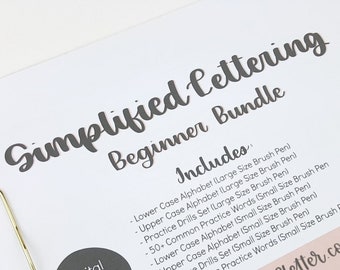 Simplified Lettering
Beginner Bundle
Includes:
- Lower Case Alphabet (Large Size Brush Pen)
- Upper Case Alphabet (Large Size Brush Pen)
- Practice Drills Set (Large Size Brush Pen)
- 50+ Common Practice Words (Small Size Brush Pen)
- Lower Case Alphabet (Small Size Brush Pen)
- Upper Case Alphabet (Small Size Brush Pen)
- Practice Drills Set (Small Size Brush Pen)
Words (Small Size Brush Pen
gital
etter.co